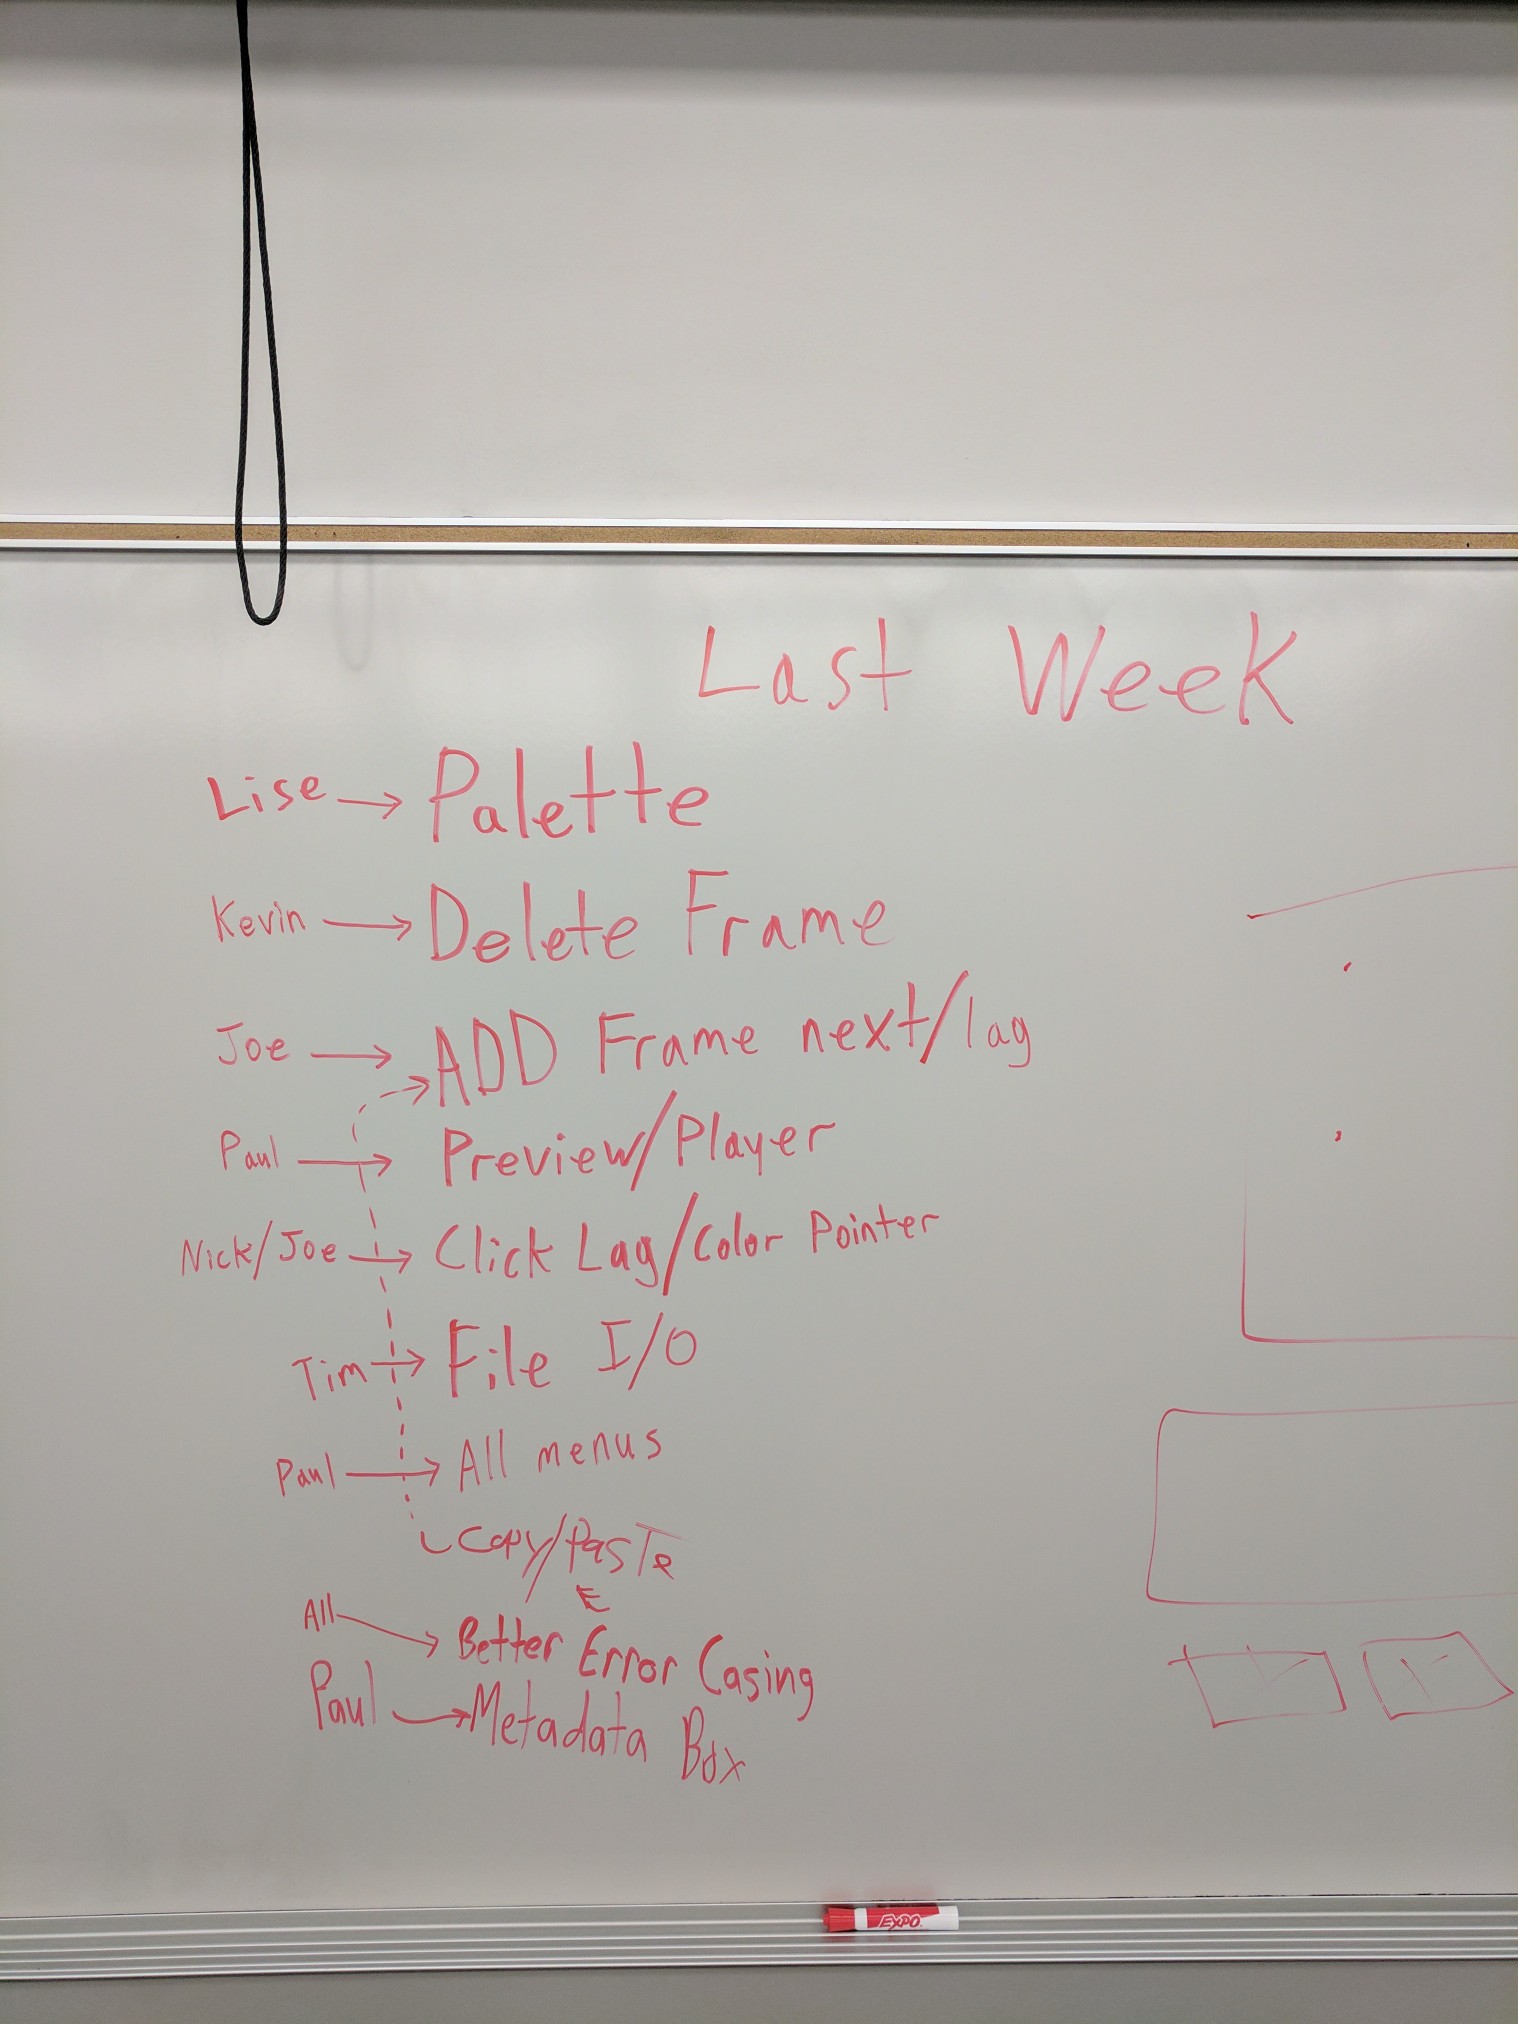 Last Week
Lise → Palette
Kevin → Delete Frame
Joe → ADD Frame next/lag
Paul → Preview/Player
Nick/Joe → Click Lag/Color Pointer
Tim → File I/O
Paul → All menus
Copy/Paste
E
All → Better Error Casing
Paul → Metadata Box
EXPO